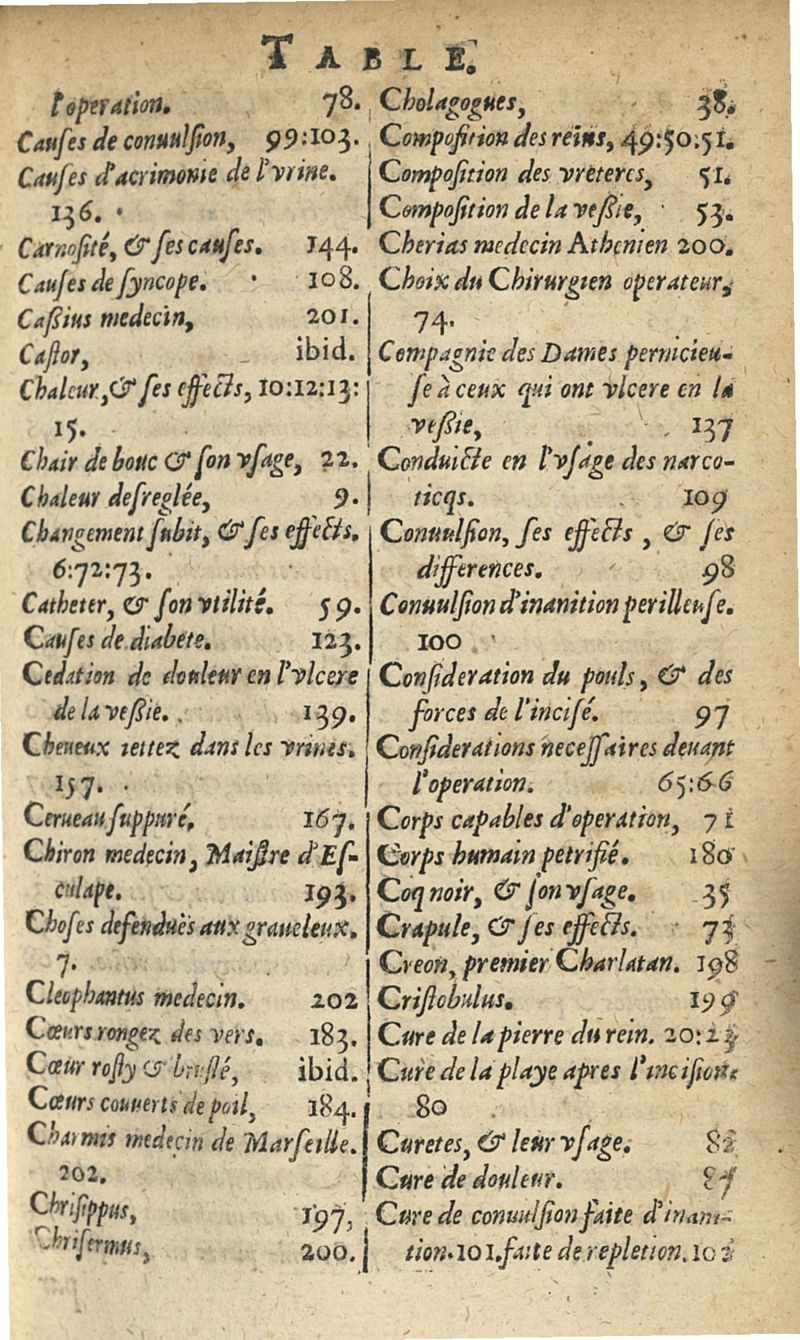 TABLE.
l'operation. 78.
Causes de conuulsion, 99:103.
Causes d'acrimonie de l'vrine.
136.
Carnosité, & ses causes. 144.
Causes de syncope. 108.
Caßius medecin, 201.
Castor, ibid.
Chaleur, & ses effects, 10:12:13:
15.
Chair de bouc & son vsage, 22.
Chaleur desreglée, 9.
Changement subit, & ses effects.
6:72:73.
Catheter, & son vtilité. 59.
Causes de diabete. 123.
Cedation de douleur en l'vlcere
de la veßie. 139.
Cheueux iettez dans les vrines.
157.
Cerueau suppuré, 167.
Chiron medecin, Maistre d'Es-
culape. 193.
Choses defenduës aux graueleux.
7.
Cleophantus medecin. 202
Cœurs rongez des vers. 183.
Cœur rosty & bruslé, ibid.
Cœurs couuerts de poil, 184.
Charmis medecin de Marseille.
202.
Chrisippus, 197,
Chrisermus, 200.
Cholagogues, 38.
Composition des reins, 49:50:51.
Composition des vreteres, 51.
Composition de la veßie, 53.
Cherias medecin Athenien 200.
Choix du Chirurgien operateur,
74.
Compagnie des Dames pernicieu-
se à ceux qui ont vlcere en la
veßie, 137
Conduicte en l'vsage des narco-
ticqs. 109
Conuulsion, ses effects, & ses
differences. 98
Conuulsion d'inanition perilleuse.
100
Consideration du pouls, & des
forces de l'incisé. 97
Considerations necessaires deuant
l'operation. 65:66
Corps capables d'operation, 71
Corps humain petrifié. 180
Coq noir, & son vsage. 35
Crapule, & ses effects. 73
Creon, premier Charlatan. 198
Cristobulus. 199
Cure de la pierre du rein. 20:23
Cure de la playe apres l'incision.
80
Curetes, & leur vsage.
Cure de douleur.
Cure de conuulsion faite d'inani-
tion. 101. faite de repletion.